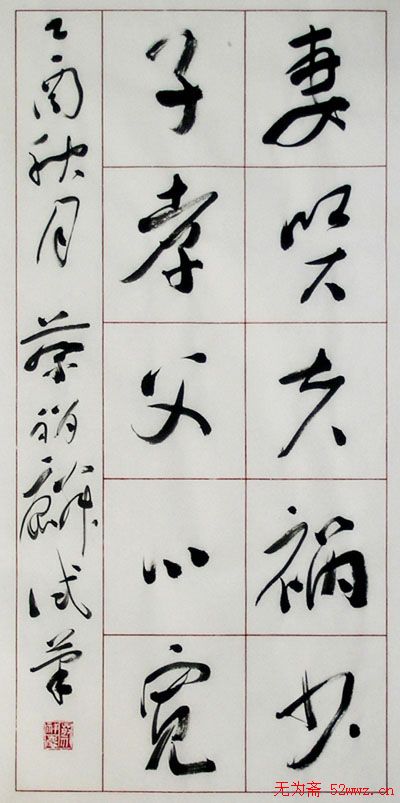 妻贤夫祸少
子孝父心宽
乙酉秋月 蔡麟试笔
无为斋 52wwz.cn